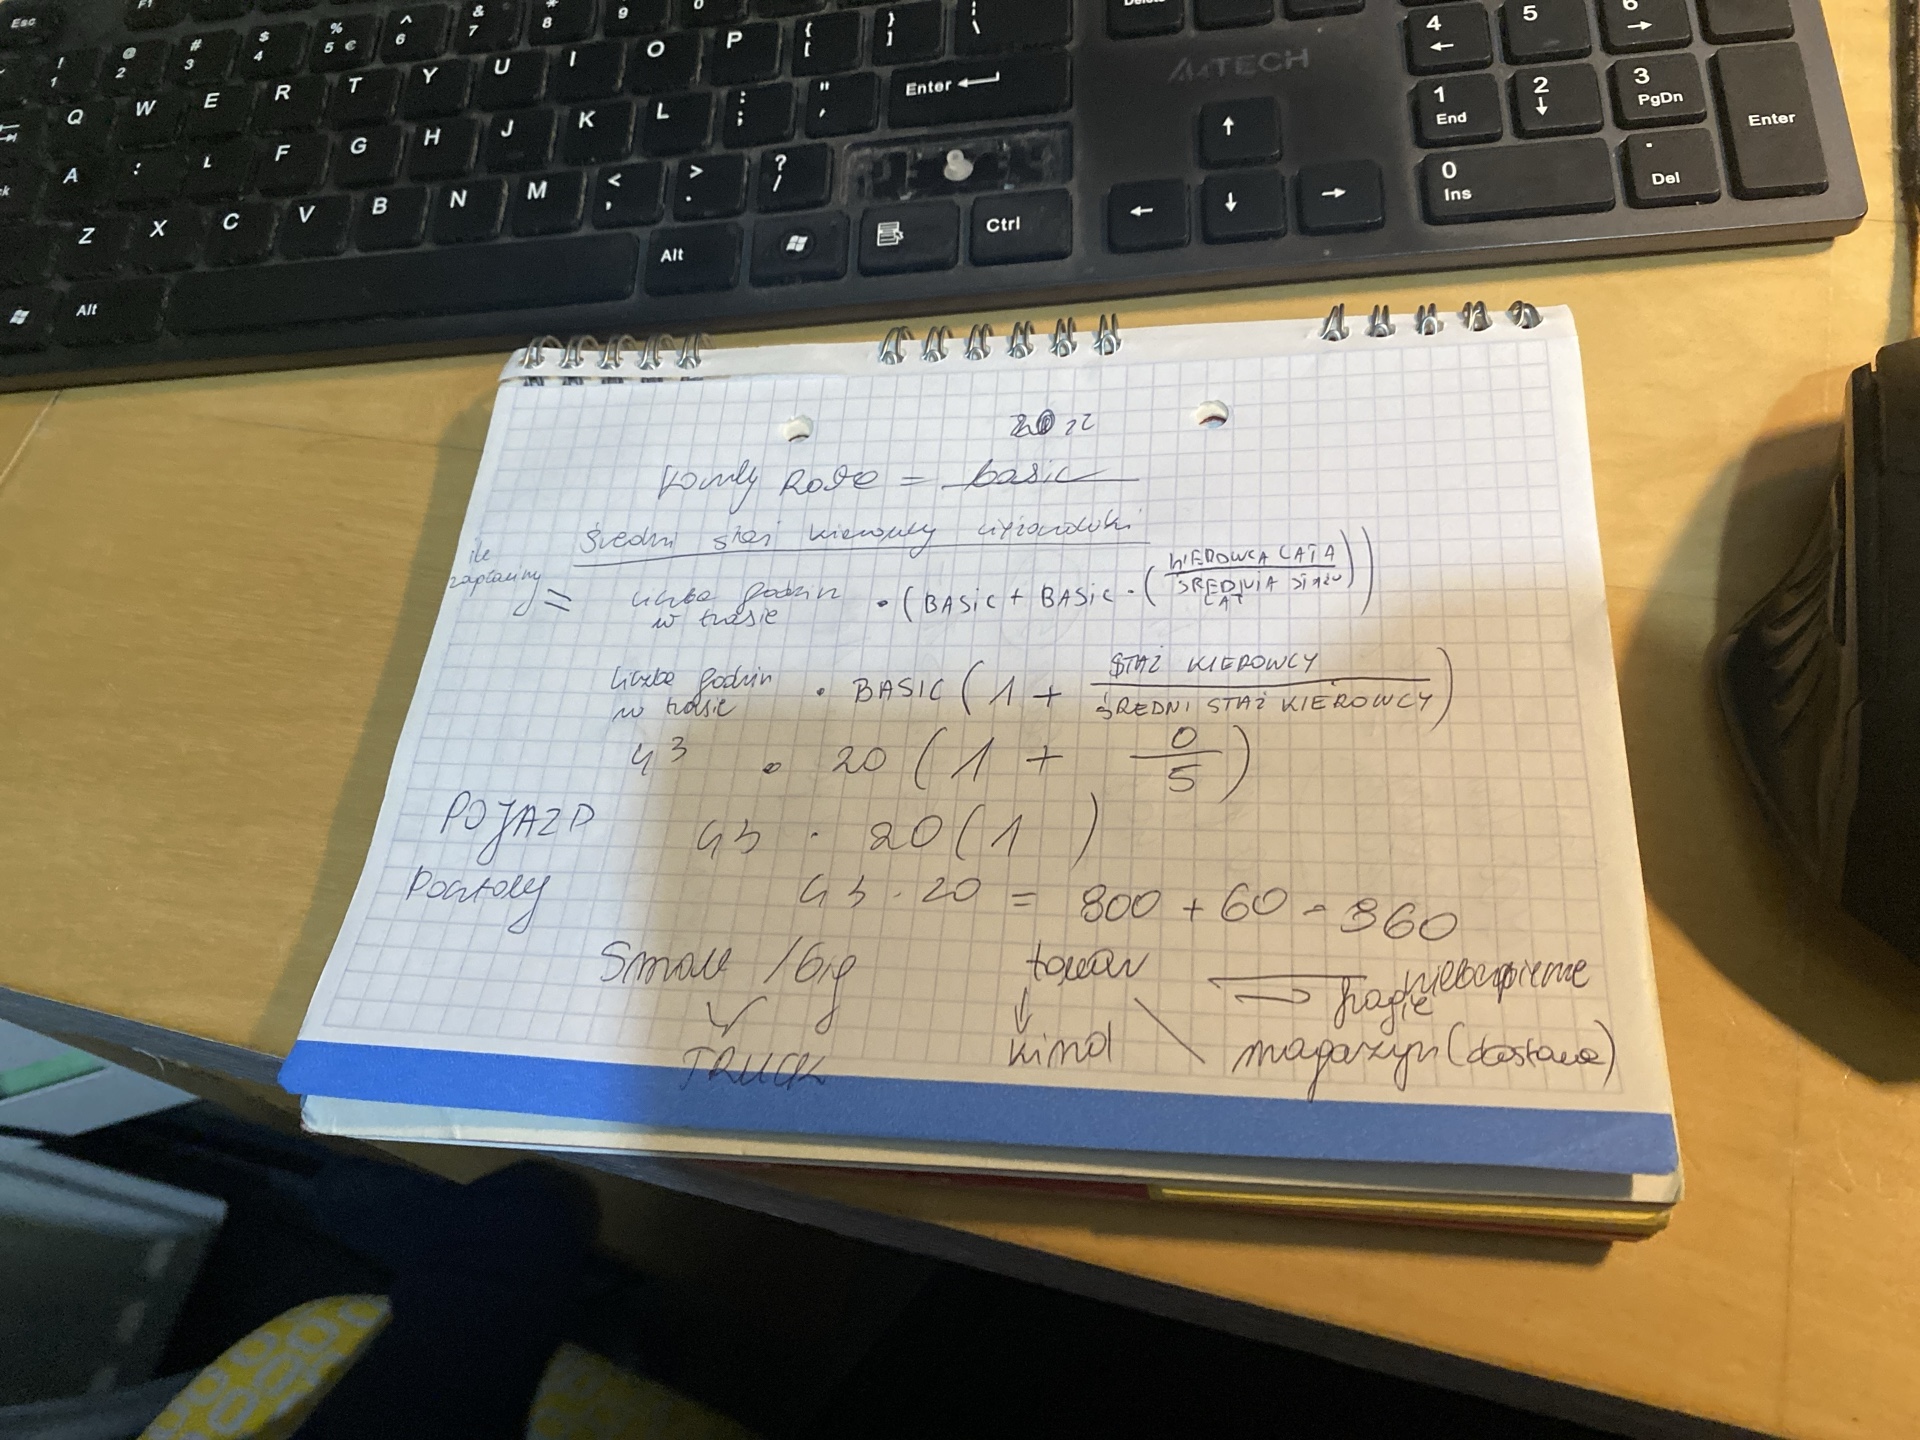 Esc F1
! 1 @ 2 # 3 $ 4 % 5 € ^ 6 & 7 * 8 9 0 } ] \
Q W E R T Y U I O P { [ } ] \
A : L F G H J K L : ; " , Enter
Z X C V B N M < , > . ? /
Alt Alt Ctrl
A4TECH
Delete
4 5 6
1 End 2 3 PgDn Enter
0 Ins . Del
20 zł
Hourly Rate = basic
Średni staż kierowcy ciężarówki
ile zapłacimy = liczba godzin w trasie · (BASIC + BASIC · (KIEROWCA LATA / ŚREDNIA STAŻU LAT))
liczba godzin w trasie · BASIC (1 + STAŻ KIEROWCY / ŚREDNI STAŻ KIEROWCY)
43 · 20 (1 + 0/5)
POJAZD 43 · 20 (1 )
43 · 20 = 800 + 60 = 860
Small / big towar niebezpieczne
fragile
TRUCK kind magazyn (dostawa)